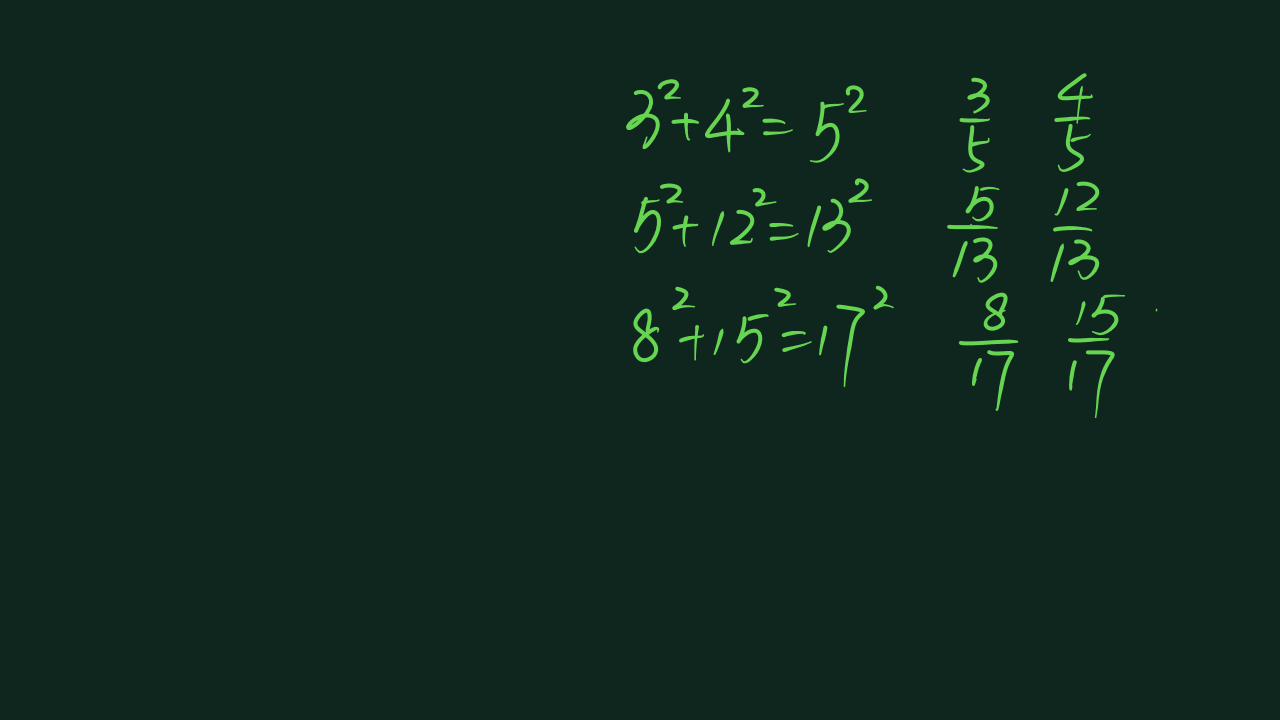 3²+4²=5² 3/5 4/5
5²+12²=13² 5/13 12/13
8²+15²=17² 8/17 15/17